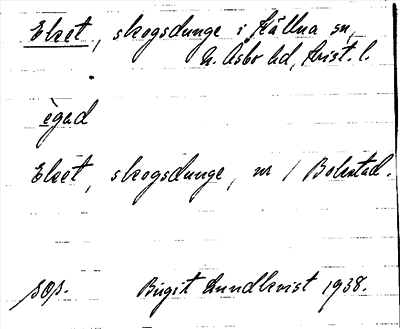 Eket, skogsdunge i Källna sn,
N. Åsbo hd, Krist. l.
ègəd
Eket, skogsdunge, nr 1 Bolestad.
sop. Birgit Lundkvist 1938.